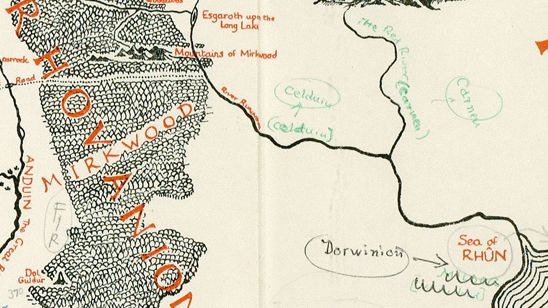 Esgaroth upon the
Long Lake
Mountains of Mirkwood
Road
RHOVANION
MIRKWOOD
River Running
Celduin
(Celduin)
The Red River (Carnen)
Carnen
ANDUIN The Great
FIR
Dol
Guldur
Dorwinion
Sea of
RHÛN